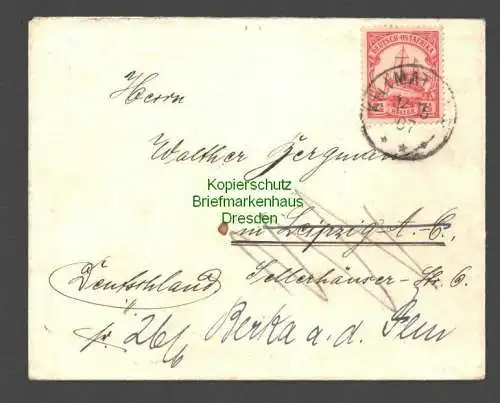 DEUTSCH-OSTAFRIKA
HELLER
07
Herrn
Walther Bergmann
Kopierschutz
Briefmarkenhaus
Dresden
in Leipzig-A.-C.,
Deutschland Sellerhäuser-Str. 6.
26/6 Berka a. d. Ilm